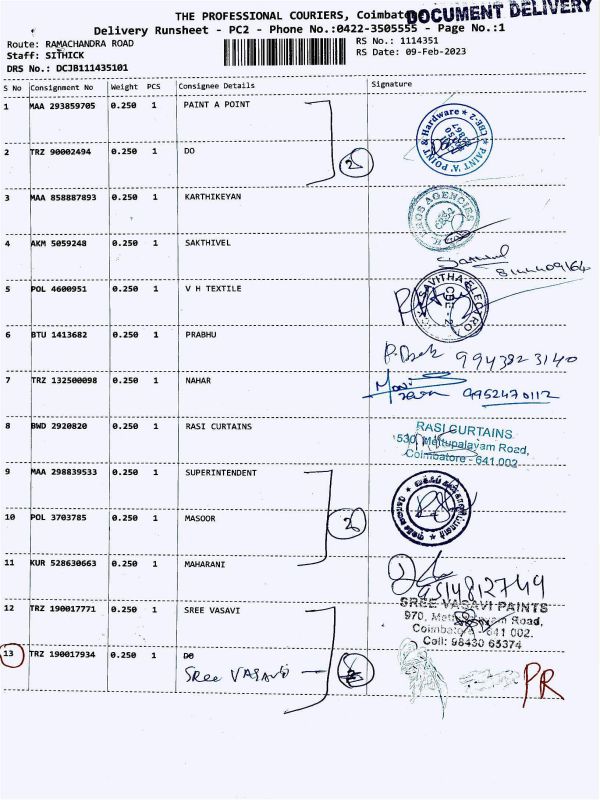 THE PROFESSIONAL COURIERS, Coimbato
DOCUMENT DELIVERY
Delivery Runsheet - PC2 - Phone No.:0422-3505555 - Page No.:1
Route: RAMACHANDRA ROAD
RS No.: 1114351
Staff: SITHICK
RS Date: 09-Feb-2023
DRS No.: DCJB111435101
S No Consignment No Weight PCS Consignee Details Signature
1 MAA 293859705 0.250 1 PAINT A POINT
PAINT 'A' POINT & Hardware ★ CBE-2 ★
2 TRZ 90002494 0.250 1 DO
2
3 MAA 858887893 0.250 1 KARTHIKEYAN
AGENCIES
4 AKM 5059248 0.250 1 SAKTHIVEL
5 POL 4600951 0.250 1 V H TEXTILE
SAVITHA ELECTRO
CBE - 2
6 BTU 1413682 0.250 1 PRABHU
994382 3140
7 TRZ 132500098 0.250 1 NAHAR
9952470112
8 BWD 2920820 0.250 1 RASI CURTAINS
RASI CURTAINS
530, Mettupalayam Road,
Coimbatore - 641 002
9 MAA 298839533 0.250 1 SUPERINTENDENT
10 POL 3703785 0.250 1 MASOOR
2
11 KUR 528630663 0.250 1 MAHARANI
9514812749
12 TRZ 190017771 0.250 1 SREE VASAVI
SREE VASAVI PAINTS
970, Mettupalayam Road,
Coimbatore - 641 002.
Cell: 98430 65374
13 TRZ 190017934 0.250 1 DO
SRee VASAVI
PR